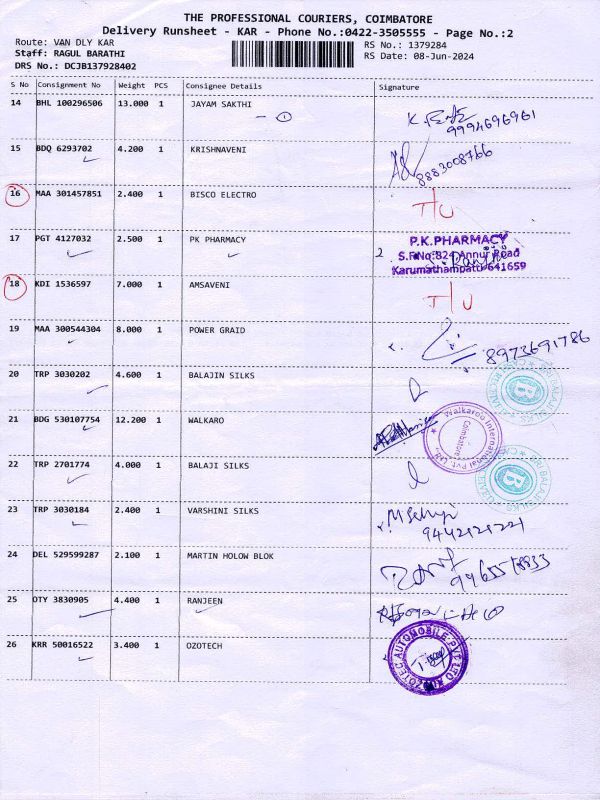 THE PROFESSIONAL COURIERS, COIMBATORE
Delivery Runsheet - KAR - Phone No.:0422-3505555 - Page No.:2
Route: VAN DLY KAR
RS No.: 1379284
Staff: RAGUL BARATHI
RS Date: 08-Jun-2024
DRS No.: DCJB137928402
S No Consignment No Weight PCS Consignee Details Signature
14 BHL 100296506 13.000 1 JAYAM SAKTHI
- 1
9994696961
15 BDQ 6293702 4.200 1 KRISHNAVENI
8883008766
16 MAA 301457851 2.400 1 BISCO ELECTRO
17 PGT 4127032 2.500 1 PK PHARMACY
P.K.PHARMACY
S.F.No:824 Annur Road
Karumathampatti-641659
18 KDI 1536597 7.000 1 AMSAVENI
19 MAA 300544304 8.000 1 POWER GRAID
8973691786
20 TRP 3030202 4.600 1 BALAJIN SILKS
21 BDG 530107754 12.200 1 WALKARO
Walkaroo International Pvt. Ltd.
Coimbatore
22 TRP 2701774 4.000 1 BALAJI SILKS
SRI BALAJI SILKS
23 TRP 3030184 2.400 1 VARSHINI SILKS
9442121221
24 DEL 529599287 2.100 1 MARTIN HOLOW BLOK
25 OTY 3830905 4.400 1 RANJEEN
26 KRR 50016522 3.400 1 OZOTECH
OZOTEC AUTOMOBILE PVT LTD